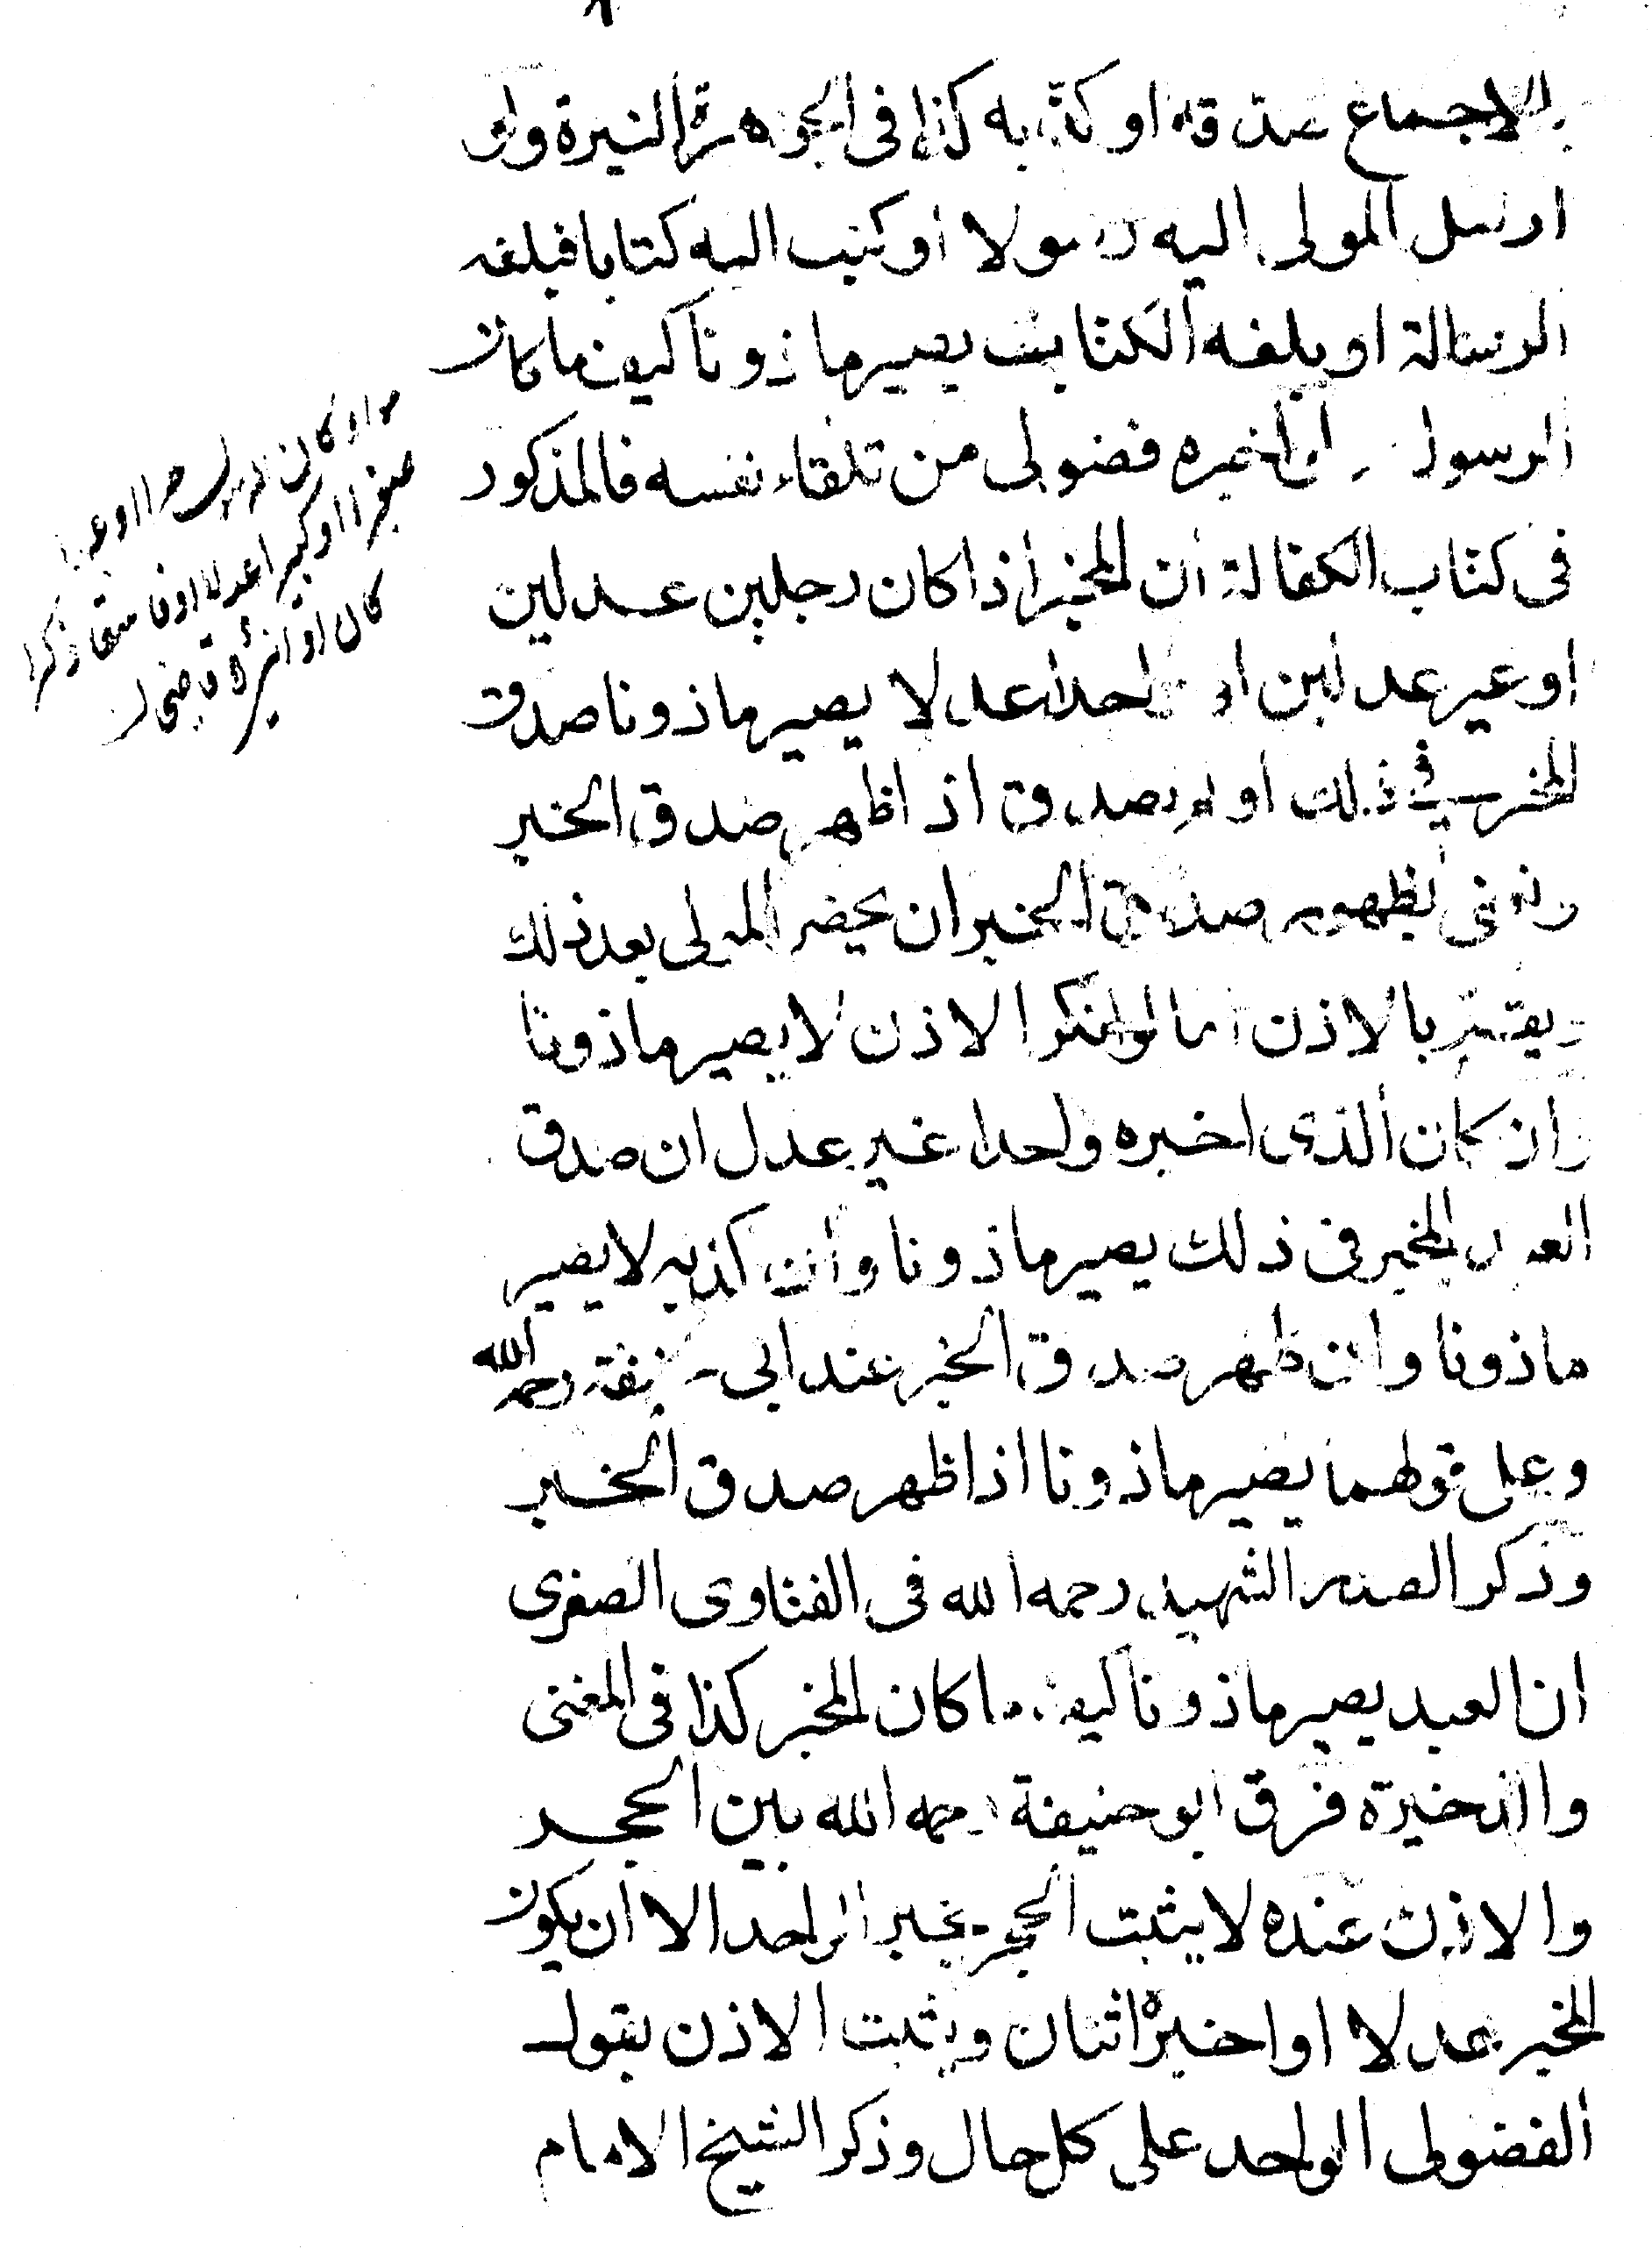 بالاجماع صدقه او كذبه كذا فى الجوهرة النيرة ولو
ارسل المولى اليه رسولا او كتب اليه كتابا فبلغه
الرسالة او بلغه الكتاب يصير ماذونا كيف ما كان
الرسول وان اخبره فضولى من تلقاء نفسه فالمذكور
فى كتاب الكفالة ان المخبر اذا كان رجلين عدلين
او غير عدلين او واحدا عدلا يصير ماذونا صدق
المخبر فى ذلك او لم يصدق اذا ظهر صدق الخبر
ونعنى بظهور صدق الخبر ان يحضر المولى بعد ذلك
ويقر بالاذن اما لو انكر الاذن لا يصير ماذونا
وان كان الذى اخبره واحدا غير عدل ان صدق
العبد المخبر فى ذلك يصير ماذونا وان كذبه لا يصير
ماذونا وان ظهر صدق الخبر عند ابى حنيفة رحمه الله
وعلى قولهما يصير ماذونا اذا ظهر صدق الخبر
وذكر الصدر الشهيد رحمه الله فى الفتاوى الصغرى
ان العبد يصير ماذونا كيف ما كان المخبر كذا فى المغنى
والذخيرة فرق ابو حنيفة رحمه الله بين الحجر
والاذن عنده لا يثبت الحجر بخبر الواحد الا ان يكون
المخبر عدلا او اخبره اثنان ويثبت الاذن بقول
الفضولى الواحد على كل حال وذكر الشيخ الامام
سواء كان الرسول حرا او عبدا
صغيرا او كبيرا عدلا او فاسقا ذكرا
كان او انثى قاضيخان